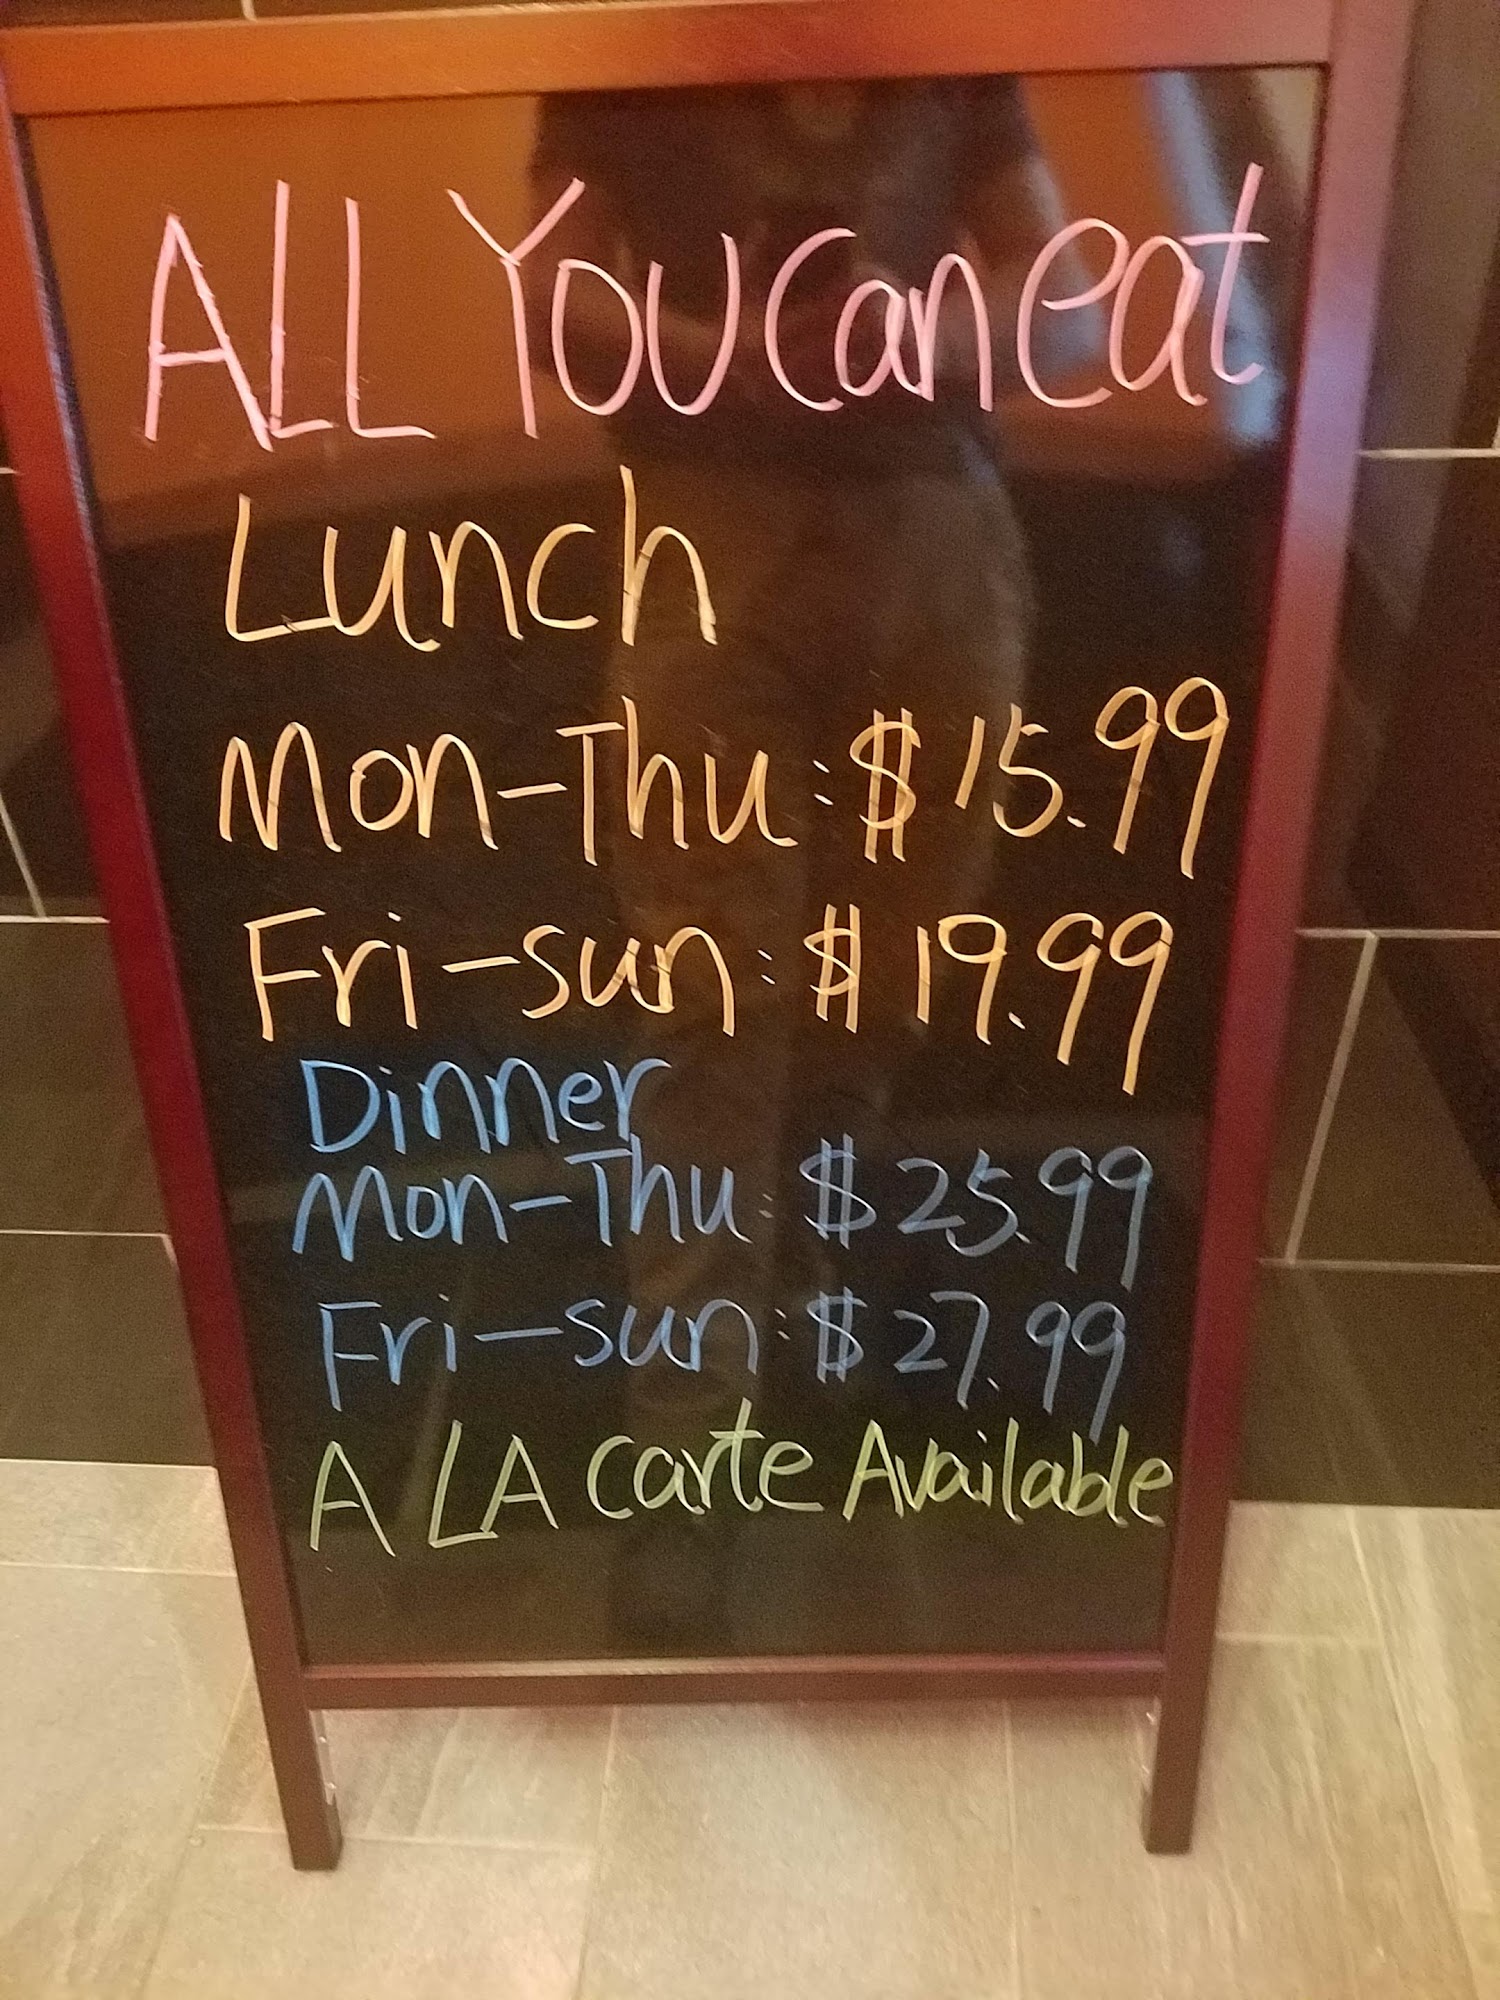 ALL YOU Can eat
Lunch
Mon-Thu: $15.99
Fri-sun: $19.99
Dinner
Mon-Thu: $25.99
Fri-sun: $27.99
A LA Carte Available